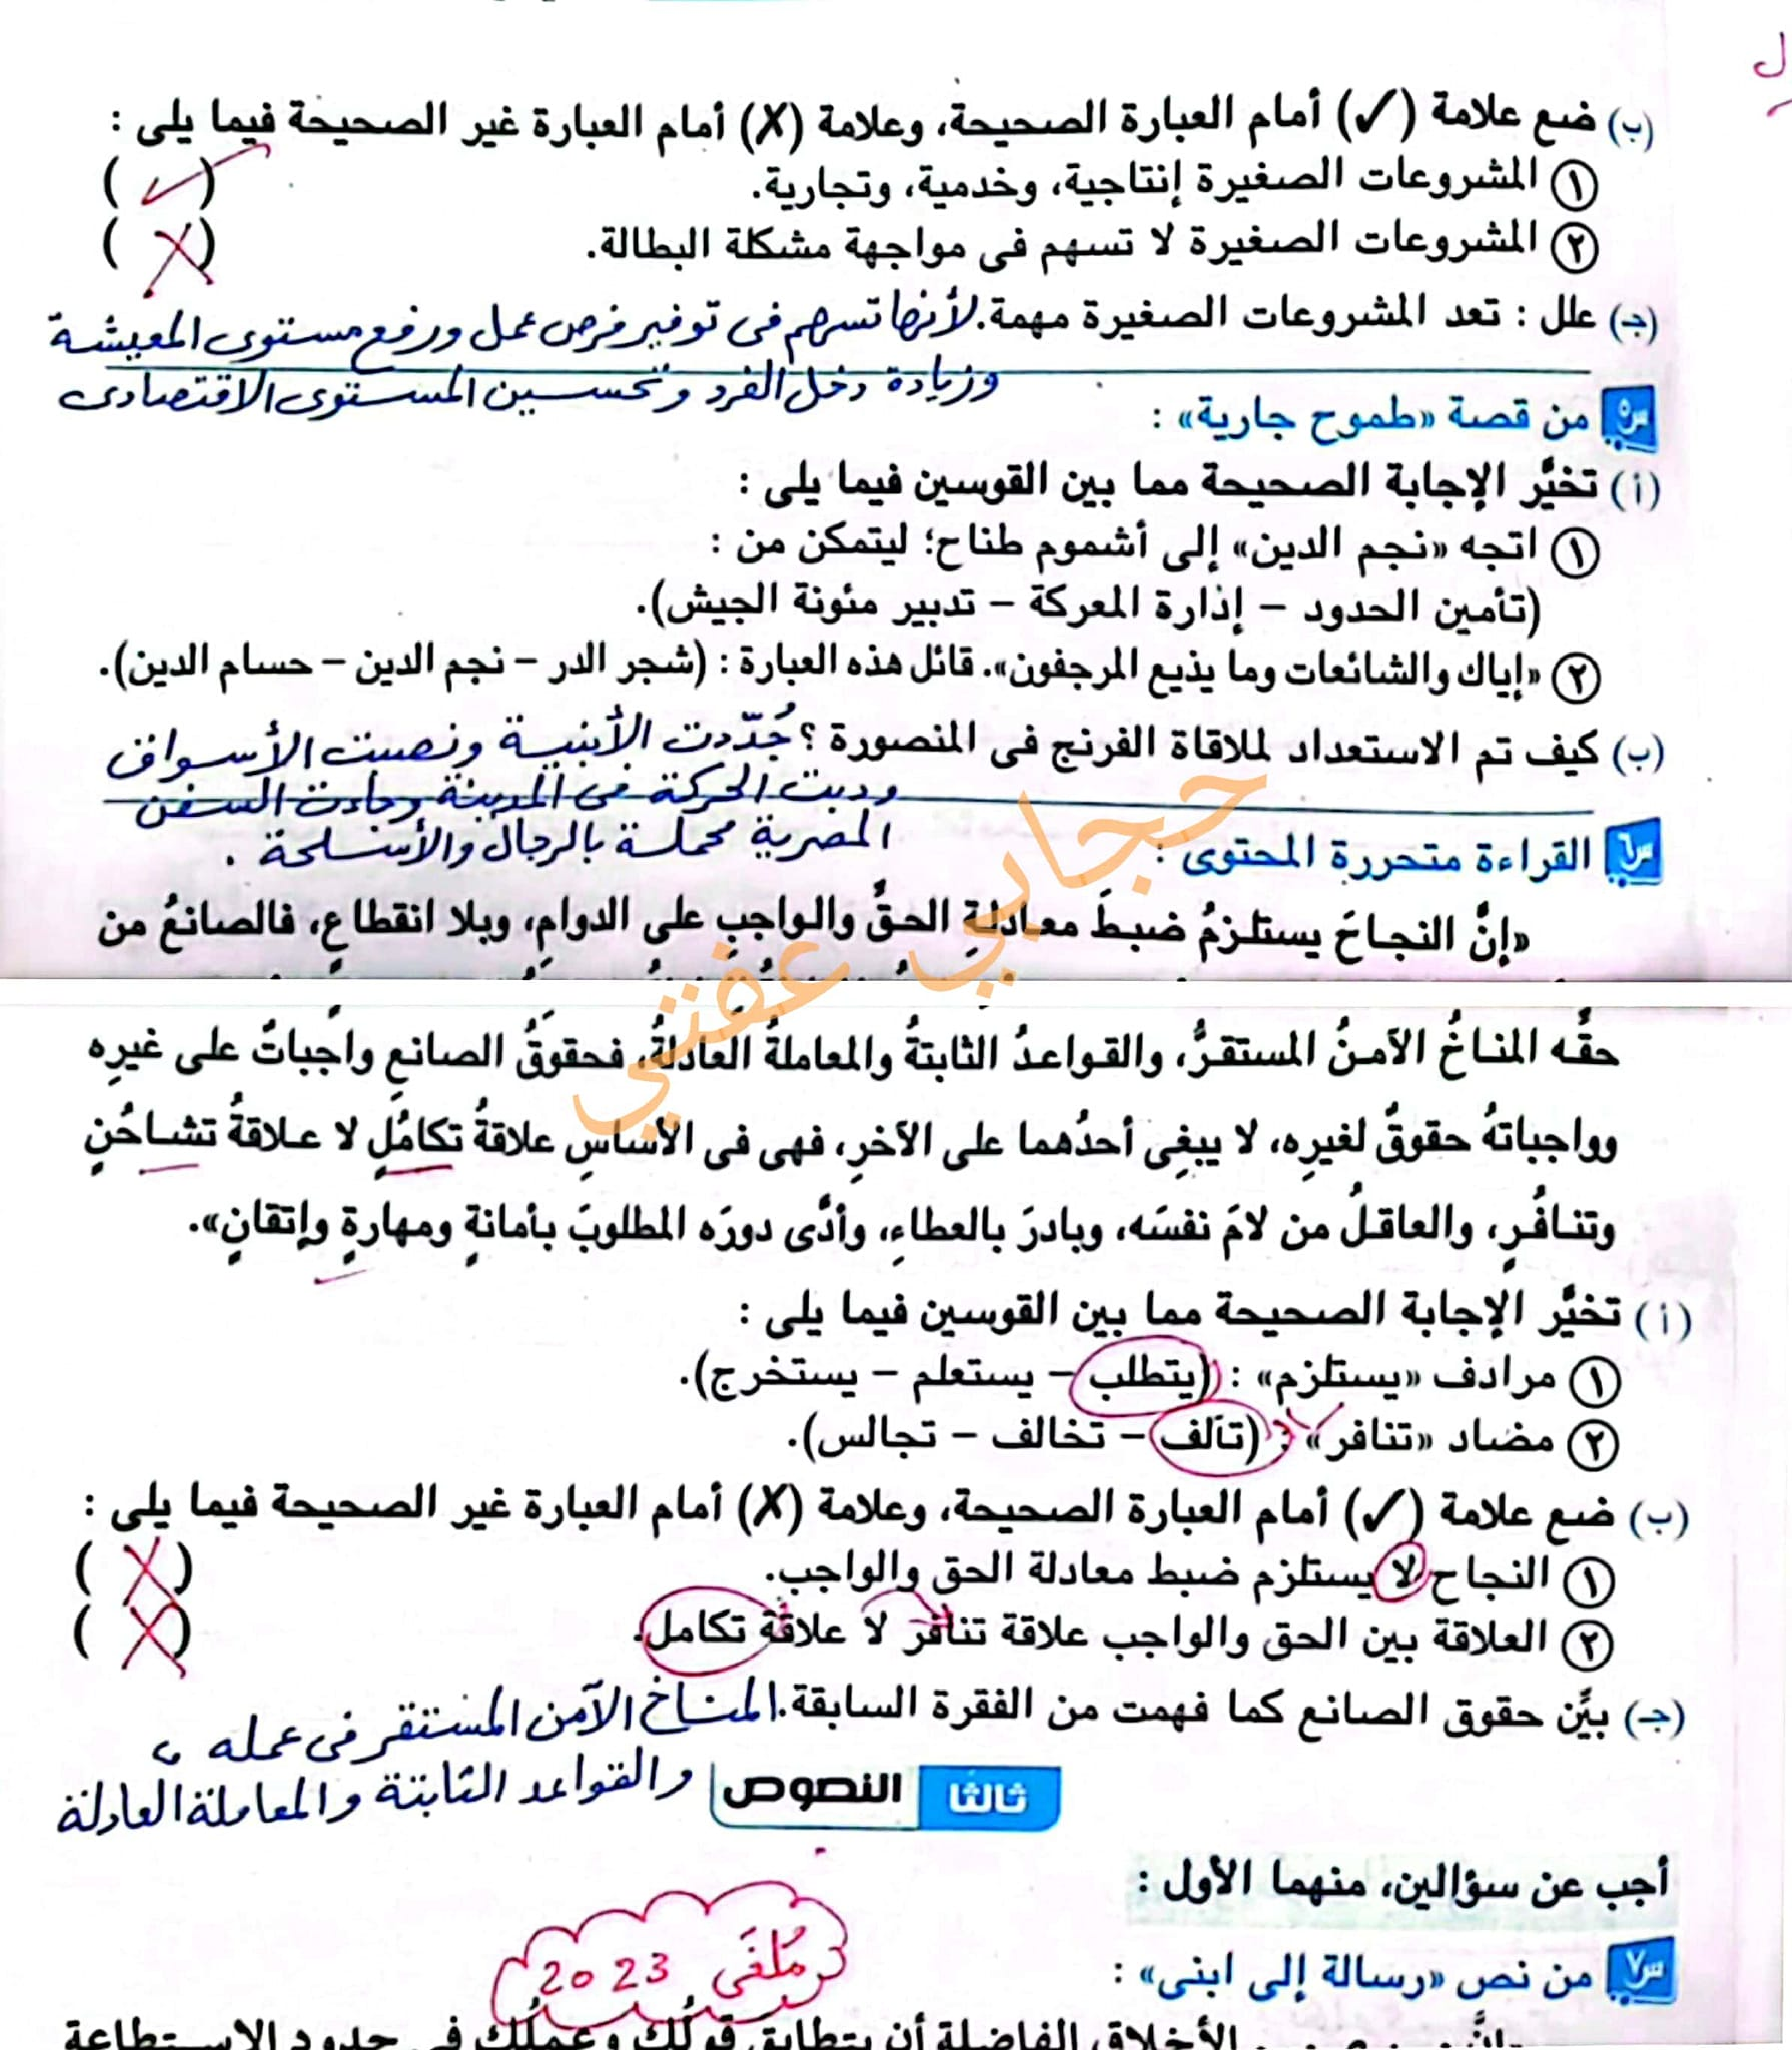 (ب) ضع علامة (✓) أمام العبارة الصحيحة، وعلامة (X) أمام العبارة غير الصحيحة فيما يلى :
① المشروعات الصغيرة إنتاجية، وخدمية، وتجارية. (✓)
② المشروعات الصغيرة لا تسهم فى مواجهة مشكلة البطالة. (X)
(جـ) علل : تعد المشروعات الصغيرة مهمة. لأنها تسهم فى توفير فرص عمل ورفع مستوى المعيشة
وزيادة دخل الفرد وتحسين المستوى الاقتصادى
س٥ من قصة «طموح جارية» :
(أ) تخيَّر الإجابة الصحيحة مما بين القوسين فيما يلى :
① اتجه «نجم الدين» إلى أشموم طناح؛ ليتمكن من :
(تأمين الحدود – إدارة المعركة – تدبير مئونة الجيش).
② «إياك والشائعات وما يذيع المرجفون». قائل هذه العبارة : (شجر الدر – نجم الدين – حسام الدين).
(ب) كيف تم الاستعداد لملاقاة الفرنج فى المنصورة ؟ جُدّدت الأبنية ونصبت الأسواق
ودبت الحركة فى المدينة وجاءت السفن
المصرية محملة بالرجال والأسلحة .
س٦ القراءة متحررة المحتوى :
«إنَّ النجاحَ يستلزمُ ضبطَ معادلةِ الحقِّ والواجبِ على الدوامِ، وبلا انقطاعٍ، فالصانعُ من
حقِّه المناخُ الآمنُ المستقرُّ، والقواعدُ الثابتةُ والمعاملةُ العادلةُ، فحقوقُ الصانعِ واجباتٌ على غيرِه
وواجباتهُ حقوقٌ لغيرِه، لا يبغِى أحدُهما على الآخرِ، فهى فى الأساسِ علاقةُ تكامُلٍ لا علاقةُ تشاحُنٍ
وتنافُرٍ، والعاقلُ من لامَ نفسَه، وبادرَ بالعطاءِ، وأدَّى دورَه المطلوبَ بأمانةٍ ومهارةٍ وإتقانٍ».
(أ) تخيَّر الإجابة الصحيحة مما بين القوسين فيما يلى :
① مرادف «يستلزم» : (يتطلب – يستعلم – يستخرج).
② مضاد «تنافر» : (تآلف – تخالف – تجالس).
(ب) ضع علامة (✓) أمام العبارة الصحيحة، وعلامة (X) أمام العبارة غير الصحيحة فيما يلى :
① النجاح لا يستلزم ضبط معادلة الحق والواجب. (X)
② العلاقة بين الحق والواجب علاقة تنافر لا علاقة تكامل. (X)
(جـ) بيِّن حقوق الصانع كما فهمت من الفقرة السابقة. المناخ الآمن المستقر فى عمله ،
والقواعد الثابتة والمعاملة العادلة
ثالثا النصوص
أجب عن سؤالين، منهما الأول :
س٧ من نص «رسالة إلى ابنى» :
مُلغَى 2023
الأخلاق الفاضلة أن يتطابق قولُك وعملُك فى حدود الاستطاعة
حجابي عفتي